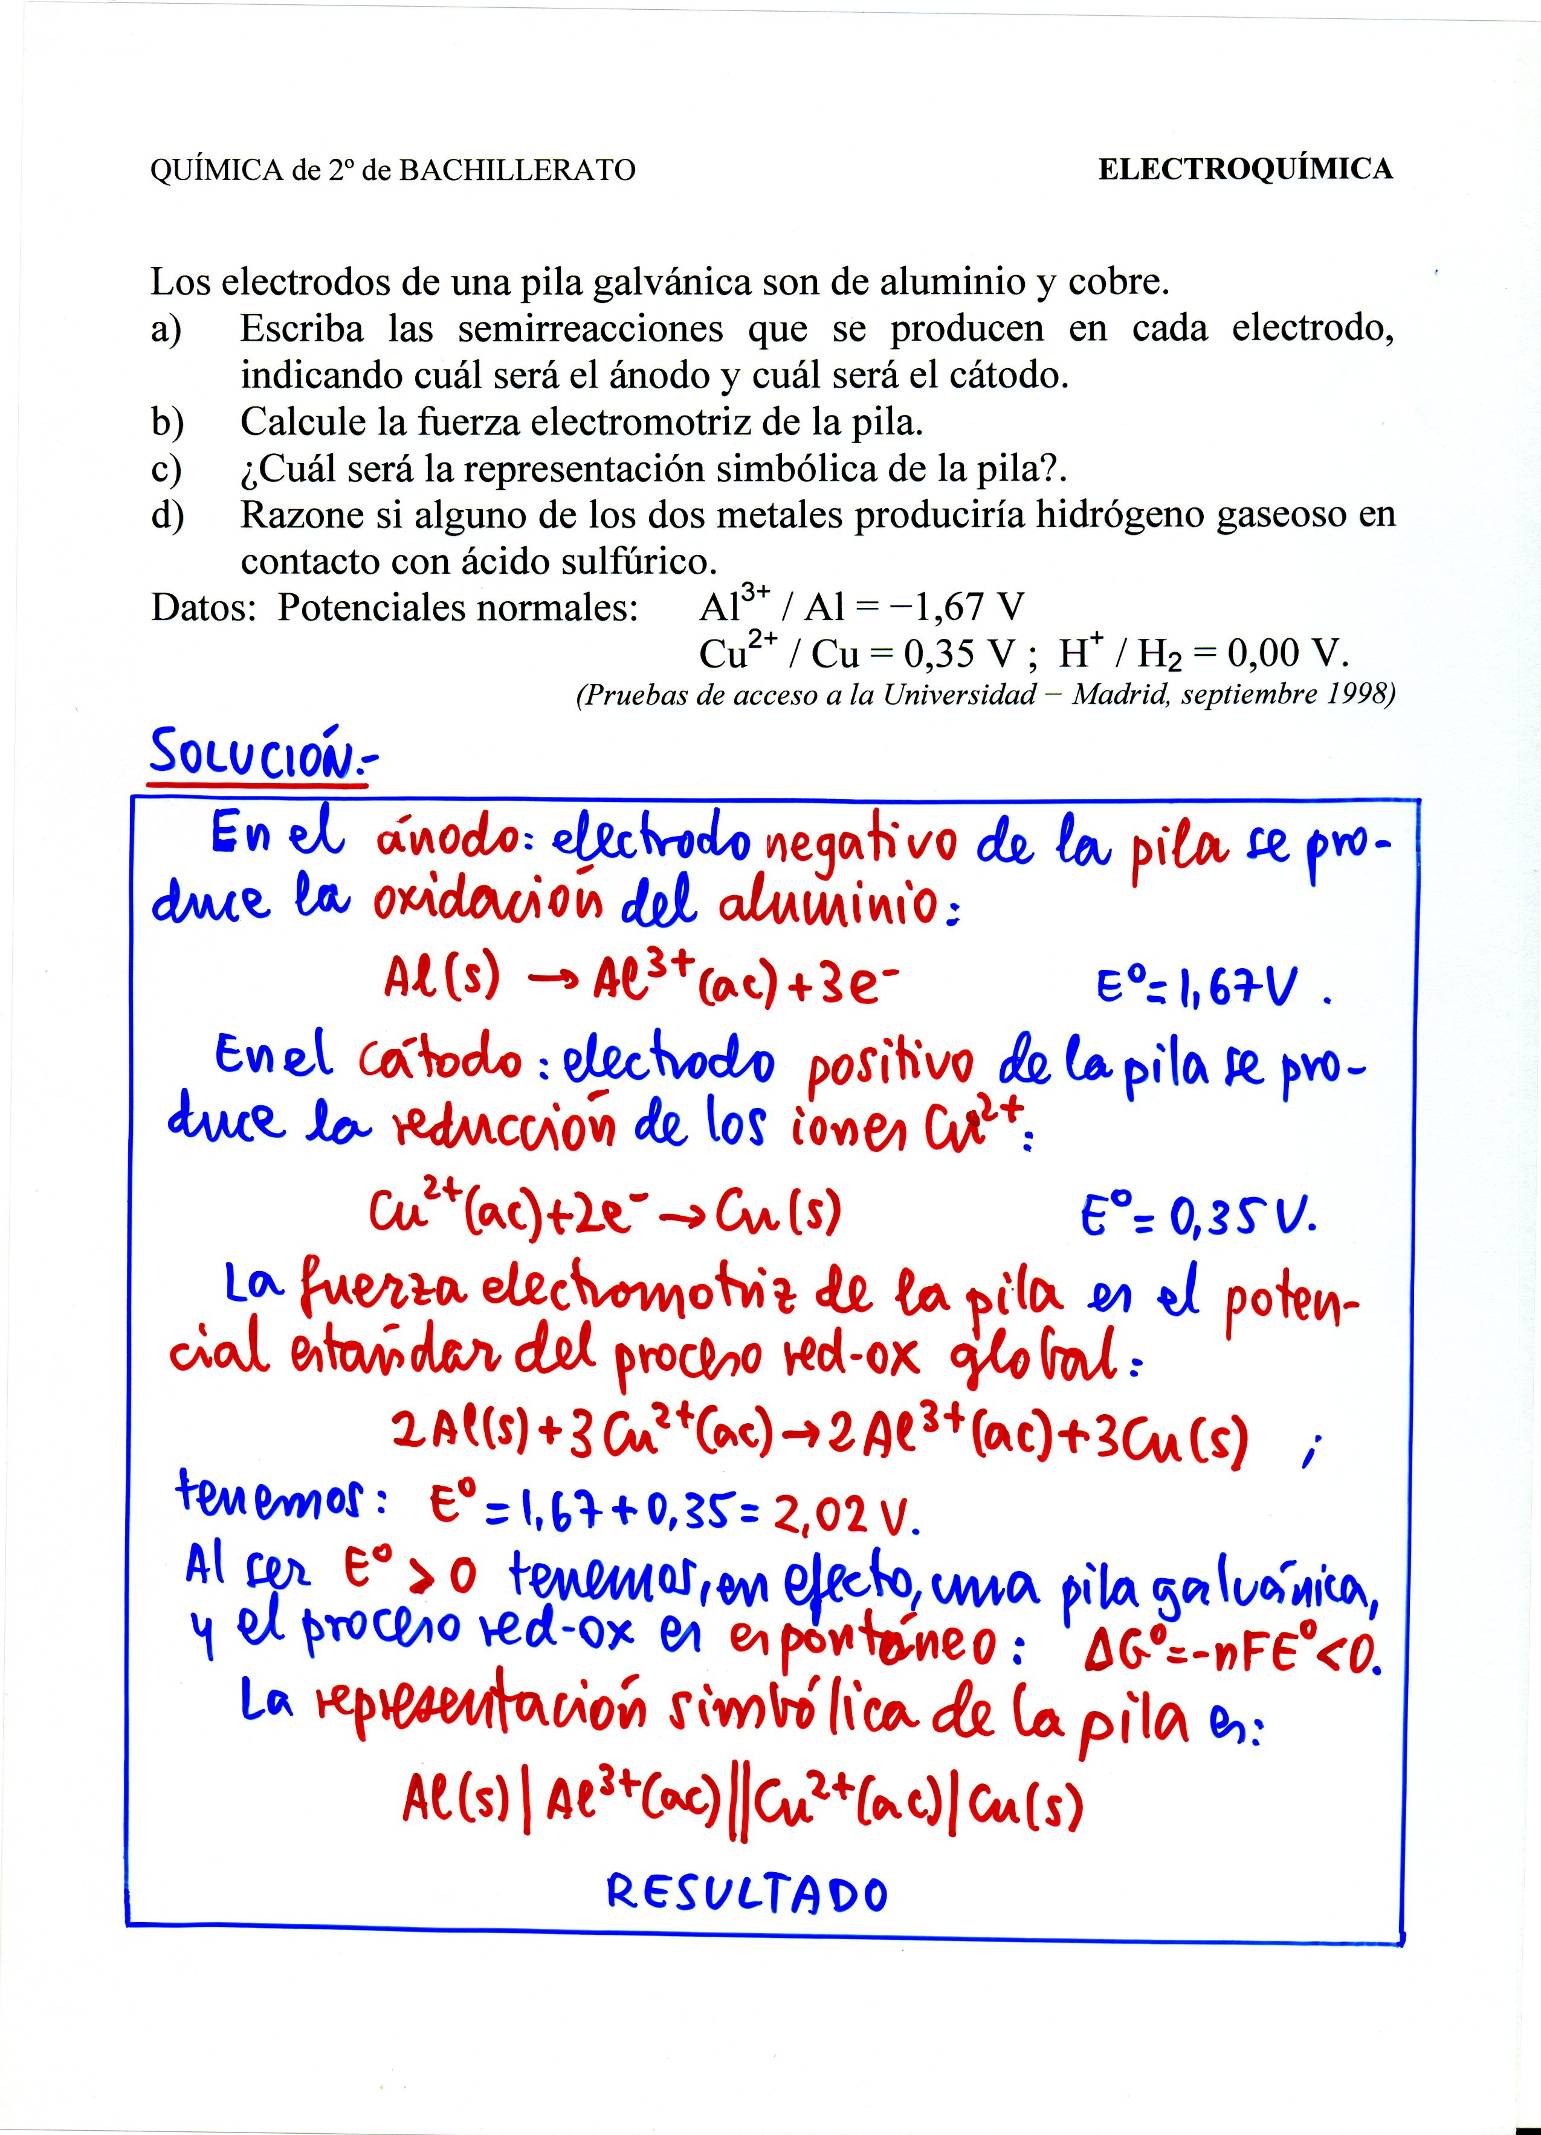 QUÍMICA de 2º de BACHILLERATO ELECTROQUÍMICA
Los electrodos de una pila galvánica son de aluminio y cobre.
a) Escriba las semirreacciones que se producen en cada electrodo,
indicando cuál será el ánodo y cuál será el cátodo.
b) Calcule la fuerza electromotriz de la pila.
c) ¿Cuál será la representación simbólica de la pila?.
d) Razone si alguno de los dos metales produciría hidrógeno gaseoso en
contacto con ácido sulfúrico.
Datos: Potenciales normales: Al³⁺ / Al = −1,67 V
Cu²⁺ / Cu = 0,35 V ; H⁺ / H₂ = 0,00 V.
(Pruebas de acceso a la Universidad − Madrid, septiembre 1998)
SOLUCIÓN:-
En el ánodo: electrodo negativo de la pila se pro-
duce la oxidación del aluminio:
Al(s) → Al³⁺(ac)+3e⁻ E⁰=1,67V.
En el cátodo: electrodo positivo de la pila se pro-
duce la reducción de los iones Cu²⁺:
Cu²⁺(ac)+2e⁻ → Cu(s) E⁰=0,35V.
La fuerza electromotriz de la pila es el poten-
cial estándar del proceso red-ox global:
2Al(s)+3Cu²⁺(ac)→2Al³⁺(ac)+3Cu(s) ;
tenemos: E⁰=1,67+0,35=2,02V.
Al ser E⁰>0 tenemos, en efecto, una pila galvánica,
y el proceso red-ox es espontáneo: ΔG⁰=-nFE⁰<0.
La representación simbólica de la pila es:
Al(s)|Al³⁺(ac)||Cu²⁺(ac)|Cu(s)
RESULTADO